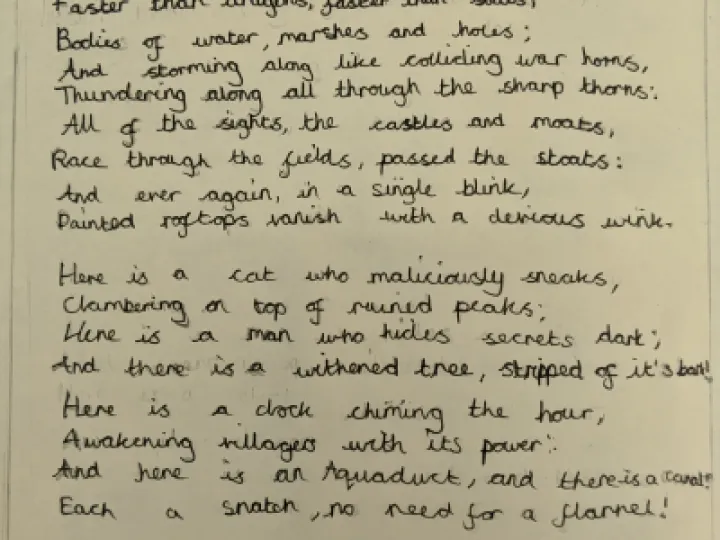 Faster than dragons, faster than
Bodies of water, marshes and holes;
And storming along like colliding war horns,
Thundering along all through the sharp thorns:
All of the sights, the castles and moats,
Race through the fields, passed the stoats:
And ever again, in a single blink,
Painted rooftops vanish with a devious wink.
Here is a cat who maliciously sneaks,
Clambering on top of ruined peaks;
Here is a man who hides secrets dark;
And there is a withered tree, stripped of it's bark!
Here is a clock chiming the hour,
Awakening villagers with its power:
And here is an Aquaduct, and there is a canal:
Each a snatch, no need for a flannel!